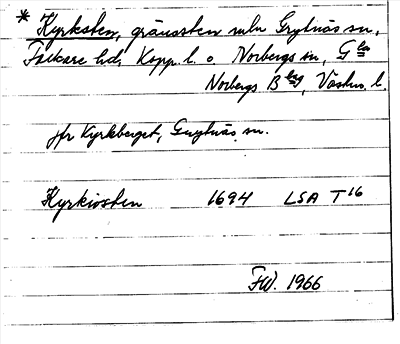 * Kyrksten, gränssten mln Grytnäs sn,
Folkare hd, Kopp. l. o. Norbergs sn, Gla
Norbergs Blag, Västm. l.
jfr Kyrkberget, Grytnäs sn.
Kyrkiosten 1694 LSA T 16
FW. 1966